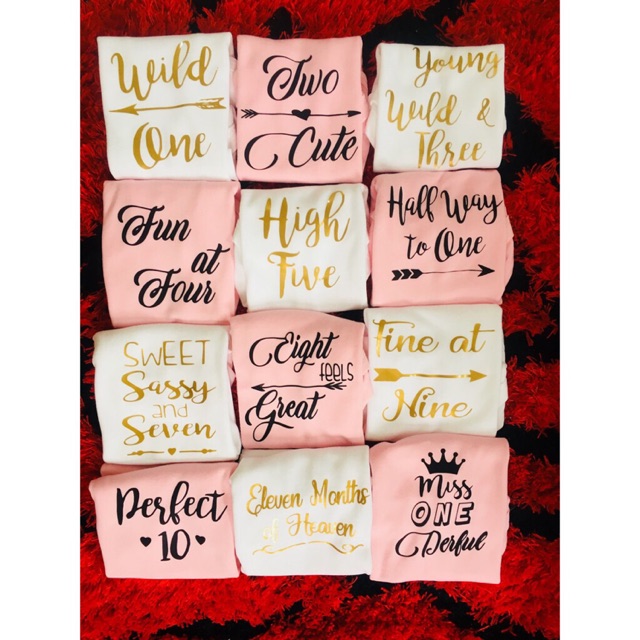 Wild
One
Two
Cute
Young
Wild &
Three
Fun
at
Four
High
Five
Half Way
to One
SWEET
Sassy
and
Seven
Eight
feels
Great
Fine at
Nine
Perfect
10
Eleven Months
of Heaven
Miss
ONE
Derful